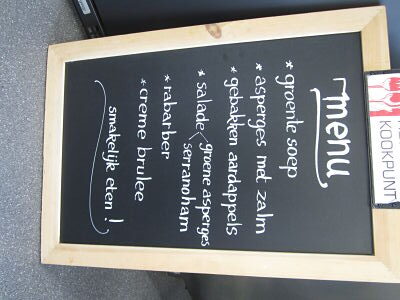 menu
* groente soep
* asperges met zalm
* gebakken aardappels
* salade < groene asperges
serranoham
* rabarber
* creme brulee
smakelijk eten !
KOOKPUNT